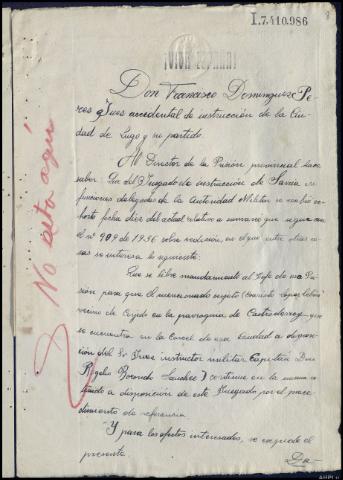 I.7,410,986
8
¡VIVA ESPAÑA!
Don Francisco Dominguez Pe-
Juez accidental de instrucción de la Ciu-
dad de Lugo y su partido.
Al Director de la Prisión provincial hace
saber: Que del Juzgado de instrucción de Sarria en
funciones delegadas de la Autoridad Militar se recibió ex-
horto fecha diez del actual relativo a sumario que sigue con
el nº 909 de 1936 sobre rebelión, en el que entre otras co-
sas se interesa lo siguiente:
Que se libre mandamiento al Jefe de esa Pri-
sión para que el mencionado sujeto (Constante López
vecino de en la parroquia de y que
se encuentra en la Carcel de esa Ciudad a disposi-
ción del Sr Juez instructor militar Capitán Don
Rogelio Sanchez) continue en la misma
a disposición de este Juzgado por el proce-
dimiento de referencia.
Y para los efectos interesados, se expide el
presente.
Da-
No esta aquí
AHPLu